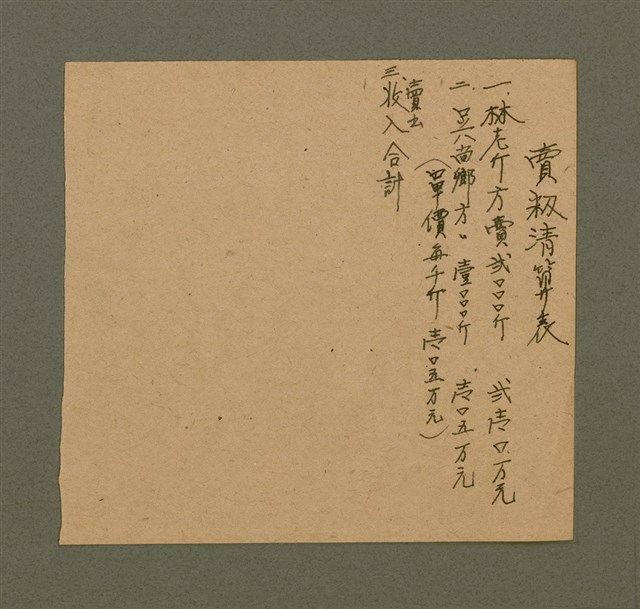 賣籾清算表
一.林老斤方賣弍〇〇〇斤 弍壱〇万元
二.呉尚鄉方〃壹〇〇〇斤 壱〇五万元
(單價每千斤壱〇五万元)
三.賣出收入合計